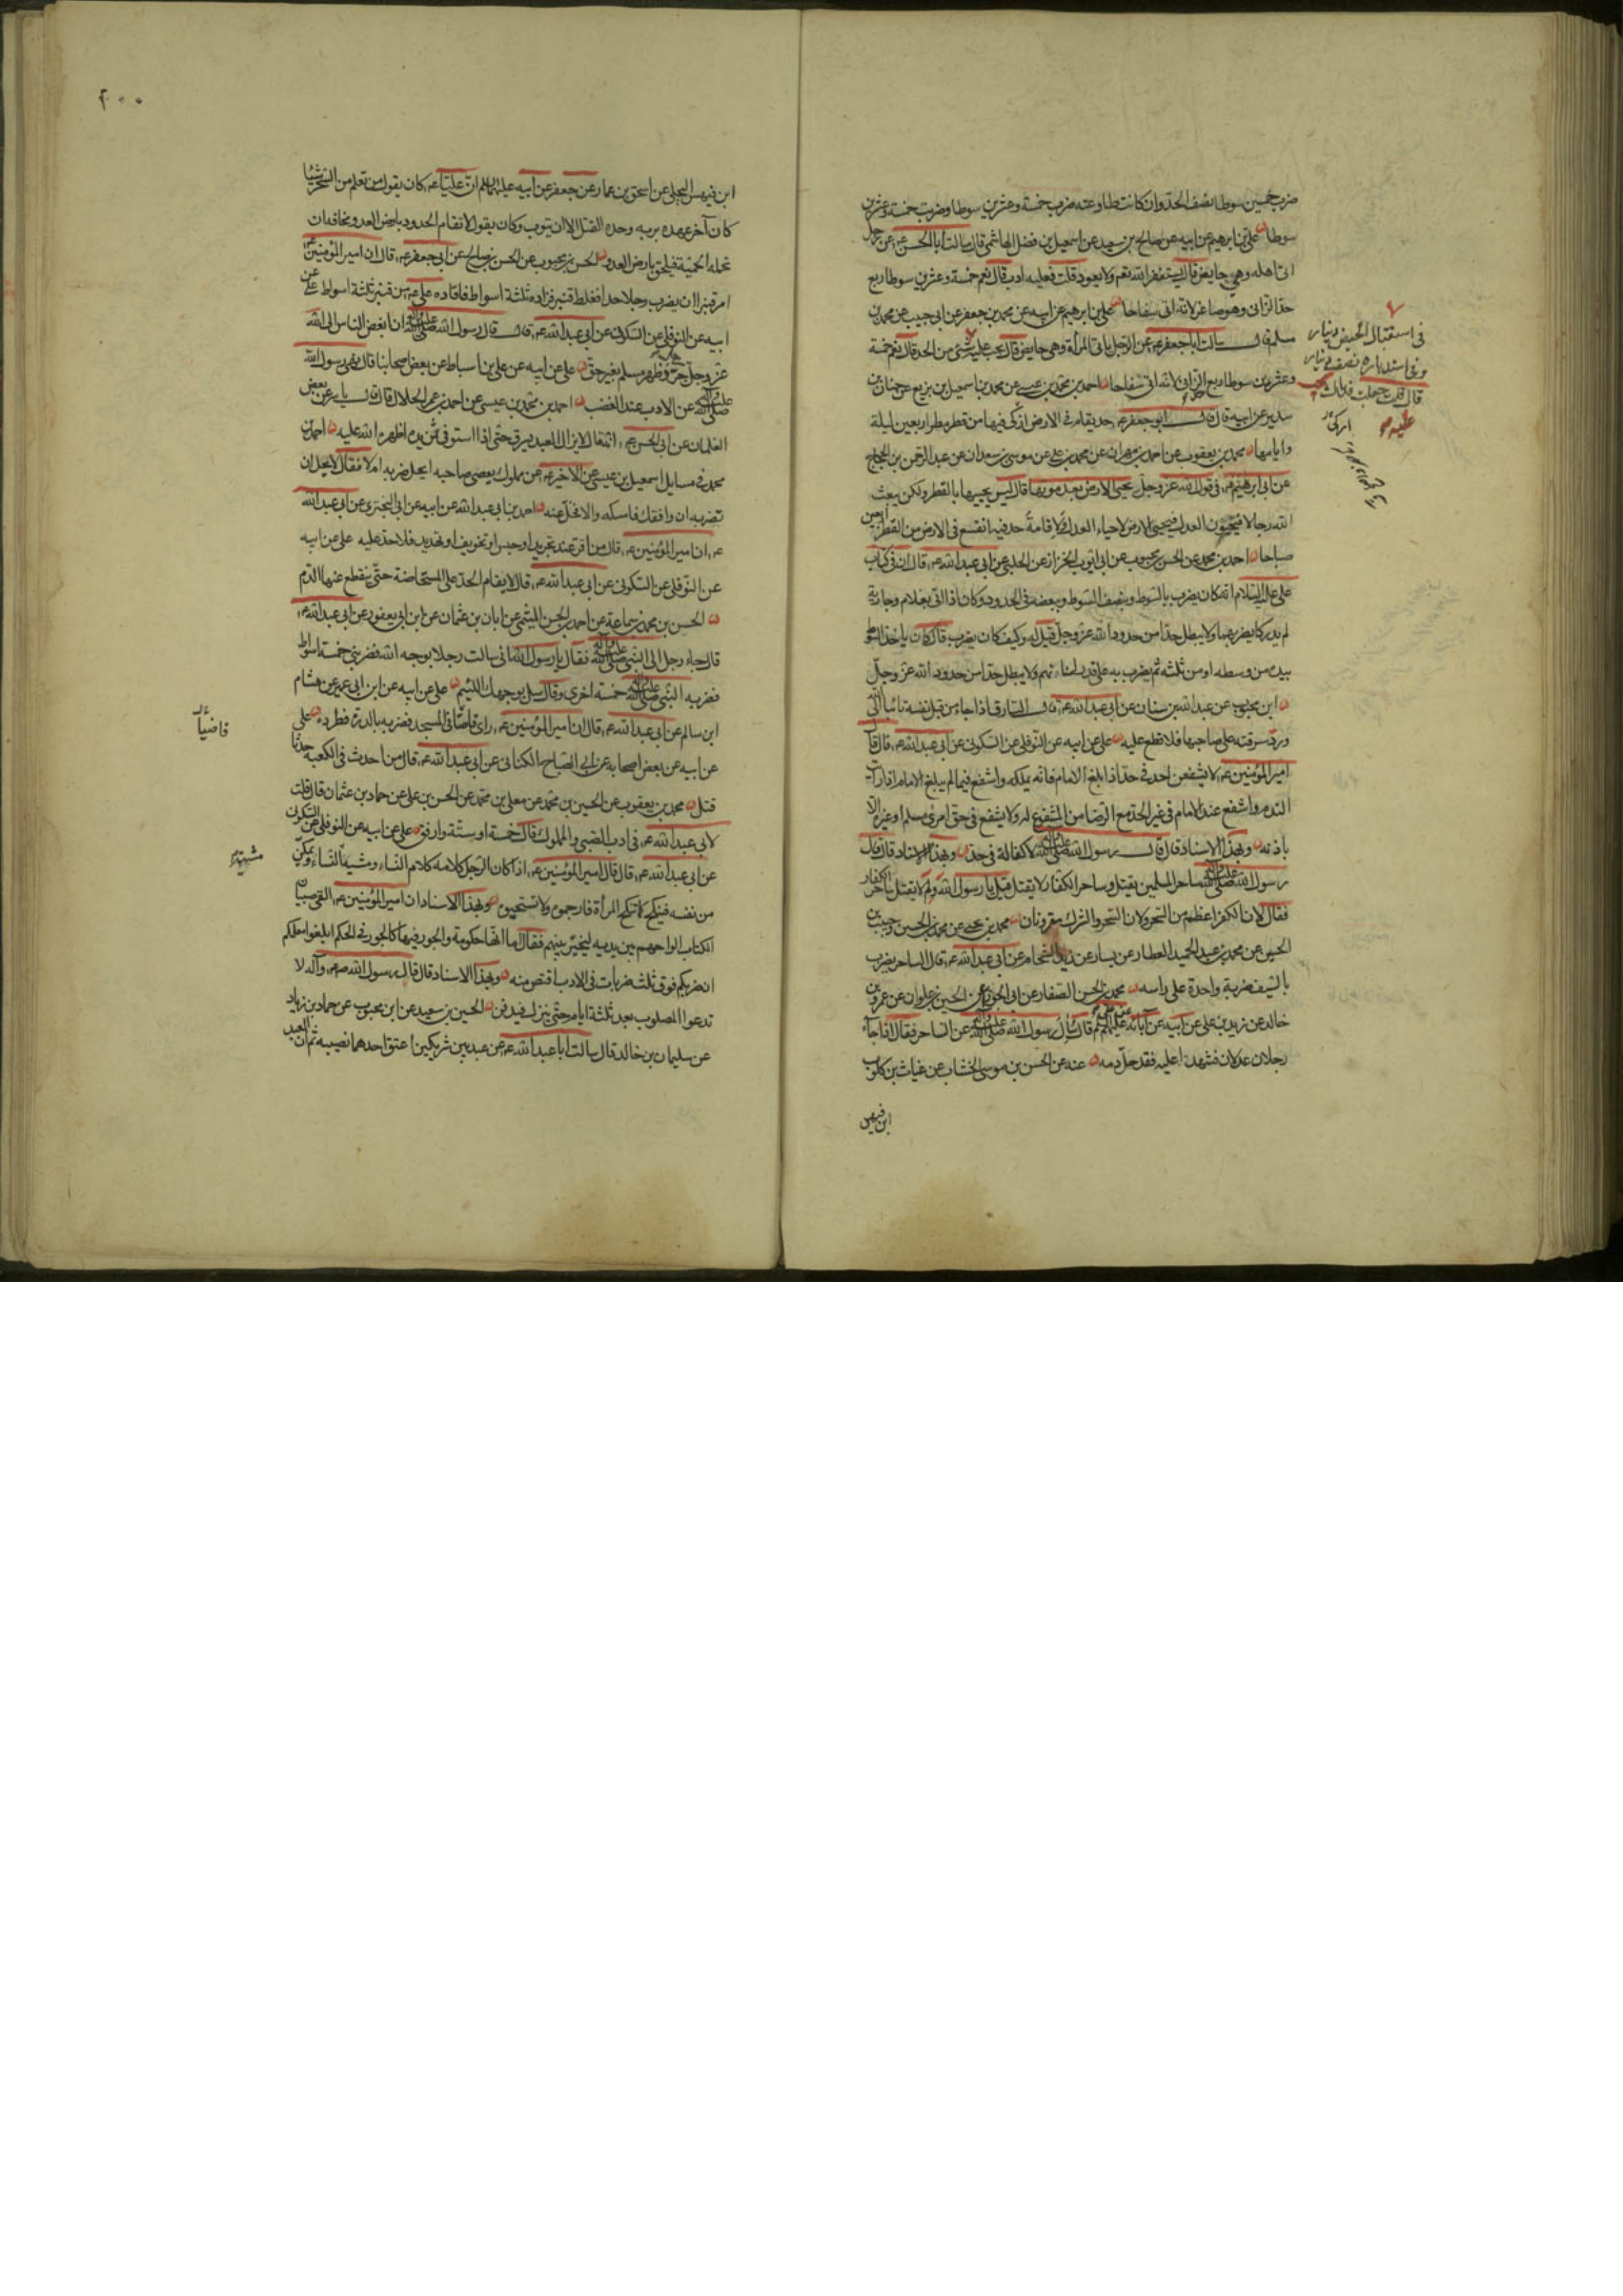 ضرب خمسين سوطا نصف الحد وان كانت طاوعته ضرب خمسة وعشرين سوطا وضربت خمسة وعشرين
سوطا علي بن ابرهيم عن ابيه عن صالح بن سعيد عن اسمعيل بن فضل الهاشمي قال سالت ابا الحسن ع عن رجل
اتى اهله وهي حايض قال يستغفر الله نعم ولا يعود قلت فعليه ادب قال نعم خمسة وعشرين سوطا ربع
حد الزاني وهو صاغر لانه اتى سفاحا علي بن ابرهيم عن ابيه عن محمد بن جعفر عن ابي حبيب عن محمد بن
مسلم قال سالت ابا جعفر ع عن الرجل ياتي المرأة وهي حايض قال يجب عليه شئ من الحد قال نعم خمسة
وعشرين سوطا ربع الزاني لانه اتى سفاحا احمد بن محمد بن عيسى عن محمد بن اسمعيل بن بزيع عن حنان بن
سدير عن ابيه قال قال ابو جعفر ع حد يقام في الارض ازكى فيها من قطر مطر اربعين ليلة
وايامها محمد بن يعقوب عن احمد بن مهران عن محمد بن علي عن موسى بن سعدان عن عبد الرحمن بن الحجاج
عن ابي ابرهيم ع في قول الله عز وجل يحيي الارض بعد موتها قال ليس يحييها بالقطر ولكن يبعث
الله رجالا فيحيون العدل فيحيي الارض لاحياء العدل ولاقامة حد فيه انفع في الارض من القطر اربعين
صباحا احمد بن محمد عن الحسن بن محبوب عن ابي ايوب الخزاز عن الحلبي عن ابي عبد الله ع قال ان في كتاب
علي عليه السلام انه كان يضرب بالسوط وبنصف السوط وببعضه في الحدود وكان اذا اتي بغلام وجارية
لم يدركا يضربهما ولا يبطل حدا من حدود الله عز وجل قيل له وكيف كان يضرب قال كان ياخذ السوط
بيده من وسطه او من ثلثه ثم يضرب به على قدر اسنانهم ولا يبطل حدا من حدود الله عز وجل
ابن محبوب عن عبد الله بن سنان عن ابي عبد الله ع قال السارق اذا جاء من قبل نفسه تائبا الى الله
ورد سرقته على صاحبها فلا قطع عليه علي عن ابيه عن النوفلي عن السكوني عن ابي عبد الله ع قال قال
امير المؤمنين ع لا يشفعن احد في حد اذا بلغ الامام فانه يملكه واشفع فيما لم يبلغ الامام اذا رايت
الندم واشفع عند الامام في غير الحد مع الرضا من المشفوع له ولا يشفع في حق امرئ مسلم او غيره الا
باذنه وبهذا الاسناد قال قال رسول الله صلى الله عليه وآله لا كفالة في حد وبهذا الاسناد قال قال
رسول الله صلى الله عليه وآله ساحر المسلمين يقتل وساحر الكفار لا يقتل قيل يا رسول الله ولم لا يقتل ساحر الكفار
فقال لان الكفر اعظم من السحر ولان السحر والشرك مقرونان محمد بن يحيى عن محمد بن الحسين وحبيب بن
الحسن عن محمد بن عبد الحميد العطار عن بسار عن زيد الشحام عن ابي عبد الله ع قال الساحر يضرب
بالسيف ضربة واحدة على راسه محمد بن الحسن الصفار عن ابي الجوزاء عن الحسين بن علوان عن عمرو بن
خالد عن زيد بن علي عن ابيه عن آبائه عليهم السلام قال سئل رسول الله صلى الله عليه وآله عن الساحر فقال اذا جاء
رجلان عدلان فشهدا عليه فقد حل دمه عنه عن الحسن بن موسى الخشاب عن غياث بن كلوب
ابن فيهس
في استقبال الحيض دينار
وفي استدباره نصف دينار
قال قلت جعلت فداك يجب
عليه
ازكى
٢٠٠
ابن فيهس البجلي عن اسحق بن عمار عن جعفر عن ابيه عليهما السلم ان عليا ع كان يقول من تعلم من السحر شيئا
كان آخر عهده بربه وحده القتل الا ان يتوب وكان يقول لا تقام الحدود بارض العدو مخافة ان
تحمله الحمية فيلحق بارض العدو الحسن بن محبوب عن الحسن بن صالح عن ابي جعفر ع قال ان امير المؤمنين ع
امر قنبرا ان يضرب رجلا حدا فغلط قنبر فزاده ثلثة اسواط فاقاده علي ع من قنبر ثلثة اسواط علي عن
ابيه عن النوفلي عن السكوني عن ابي عبد الله ع قال قال رسول الله صلى الله عليه وآله ان ابغض الناس الى الله
عز وجل رجل جرد ظهر مسلم بغير حق علي عن ابيه عن علي بن اسباط عن بعض اصحابنا قال نهى رسول الله
صلى الله عليه وآله عن الادب عند الغضب احمد بن محمد بن عيسى عن احمد بن عمر الحلال قال قال ياسر عن بعض
الغلمان عن ابي الحسن ع انه قال لا يزال العبد يسرق حتى اذا استوفى ثمن يده اظهره الله عليه احمد بن
محمد في مسايل اسمعيل بن عيسى عن الاخير ع عن مملوك يعصي صاحبه ايحل ضربه ام لا فقال لا يحل ان
تضربه ان وافقك فامسكه والا فخل عنه احمد بن ابي عبد الله عن ابيه عن ابي البختري عن ابي عبد الله
ع ان امير المؤمنين ع قال من اقر عند تجريد او حبس او تخويف او تهديد فلا حد عليه علي عن ابيه
عن النوفلي عن السكوني عن ابي عبد الله ع قال لا يقام الحد على المستحاضة حتى ينقطع عنها الدم
الحسن بن محمد بن سماعة عن احمد بن الحسن الميثمي عن ابان بن عثمان عن ابن ابي يعفور عن ابي عبد الله ع
قال جاء رجل الى النبي صلى الله عليه وآله فقال يا رسول الله اني سالت رجلا بوجه الله فضربني خمسة اسواط
فضربه النبي صلى الله عليه وآله خمسة اخرى وقال سل بوجهك اللئيم علي عن ابيه عن ابن ابي عمير عن هشام
ابن سالم عن ابي عبد الله ع قال ان امير المؤمنين ع راى قاصا في المسجد فضربه بالدرة فطرده علي
عن ابيه عن بعض اصحابه عن ابي الصباح الكناني عن ابي عبد الله ع قال من احدث في الكعبة حدثا
قتل محمد بن يعقوب عن الحسين بن محمد عن معلى بن محمد عن الحسن بن علي عن حماد بن عثمان قال قلت
لابي عبد الله ع في ادب الصبي والمملوك قال خمسة او ستة وارفق علي عن ابيه عن النوفلي عن السكوني
عن ابي عبد الله ع قال قال امير المؤمنين ع اذا كان الرجل كلامه كلام النساء ومشيه النساء ويمكن
من نفسه فينكح كما تنكح المرأة فارجموه ولا تستحيوه وبهذا الاسناد ان امير المؤمنين ع القى صبيان
الكتاب الواحهم بين يديه ليخير بينهم فقال اما انها حكومة والجور فيها كالجور في الحكم ابلغوا معلمكم
ان ضربكم فوق ثلث ضربات في الادب اقتص منه وبهذا الاسناد قال قال رسول الله ص وآله لا
تدعوا المصلوب بعد ثلثة ايام حتى ينزل فيدفن الحسين بن سعيد عن ابن محبوب عن حماد بن زياد
عن سليمان بن خالد قال سالت ابا عبد الله ع عن عبد بين شريكين اعتق احدهما نصيبه ثم ان العبد
قاضيا
مشيته